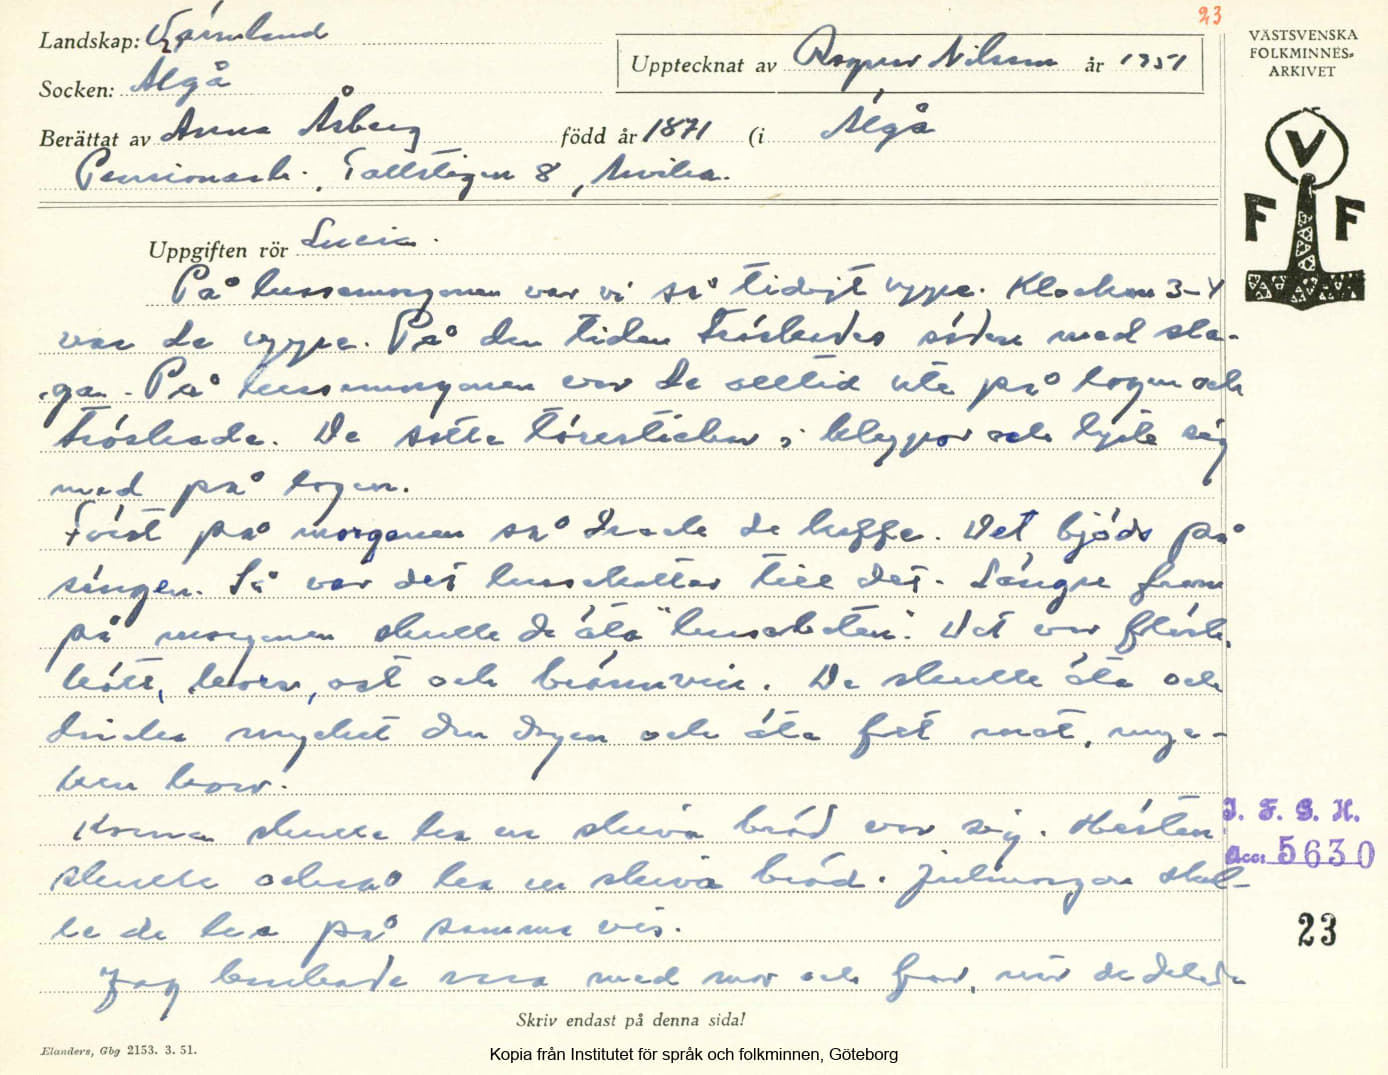 23
Landskap: Värmland
VÄSTSVENSKA
FOLKMINNES-
ARKIVET
Upptecknat av Ragnar Nilsson år 1951
Socken: Älgå
Berättat av Anna Åsberg född år 1871 (i Älgå
Pensionärh., Tallstigen 8, Arvika.
V
F F
Uppgiften rör Lucia.
På lussemorgonen var vi så tidigt uppe. Klockan 3-4
var de uppe. På den tiden tröskades säden med sla-
gan. På lussemorgonen var de alltid ute på logen och
tröskade. De satte törestickor i klyppor och lyste sig
med på logen.
Först på morgonen så drack de kaffe. Det bjöds på
sängen. Så var det lussekatter till det. Längre fram
på morgonen skulle de äta "lussebeten". Det var fläsk,
kött, korv, ost och brännvin. De skulle äta och
dricka mycket den dagen och äta fet mat, myc-
ken korv.
Korna skulle ha en skiva bröd var sig. Hästen
skulle också ha en skiva bröd. Julmorgon skul-
le de ha på samma vis.
Jag brukade vara med mor och far, när de delade
I. F. G. H.
Acc: 5630
23
Skriv endast på denna sida!
Elanders, Gbg 2153. 3. 51.
Kopia från Institutet för språk och folkminnen, Göteborg